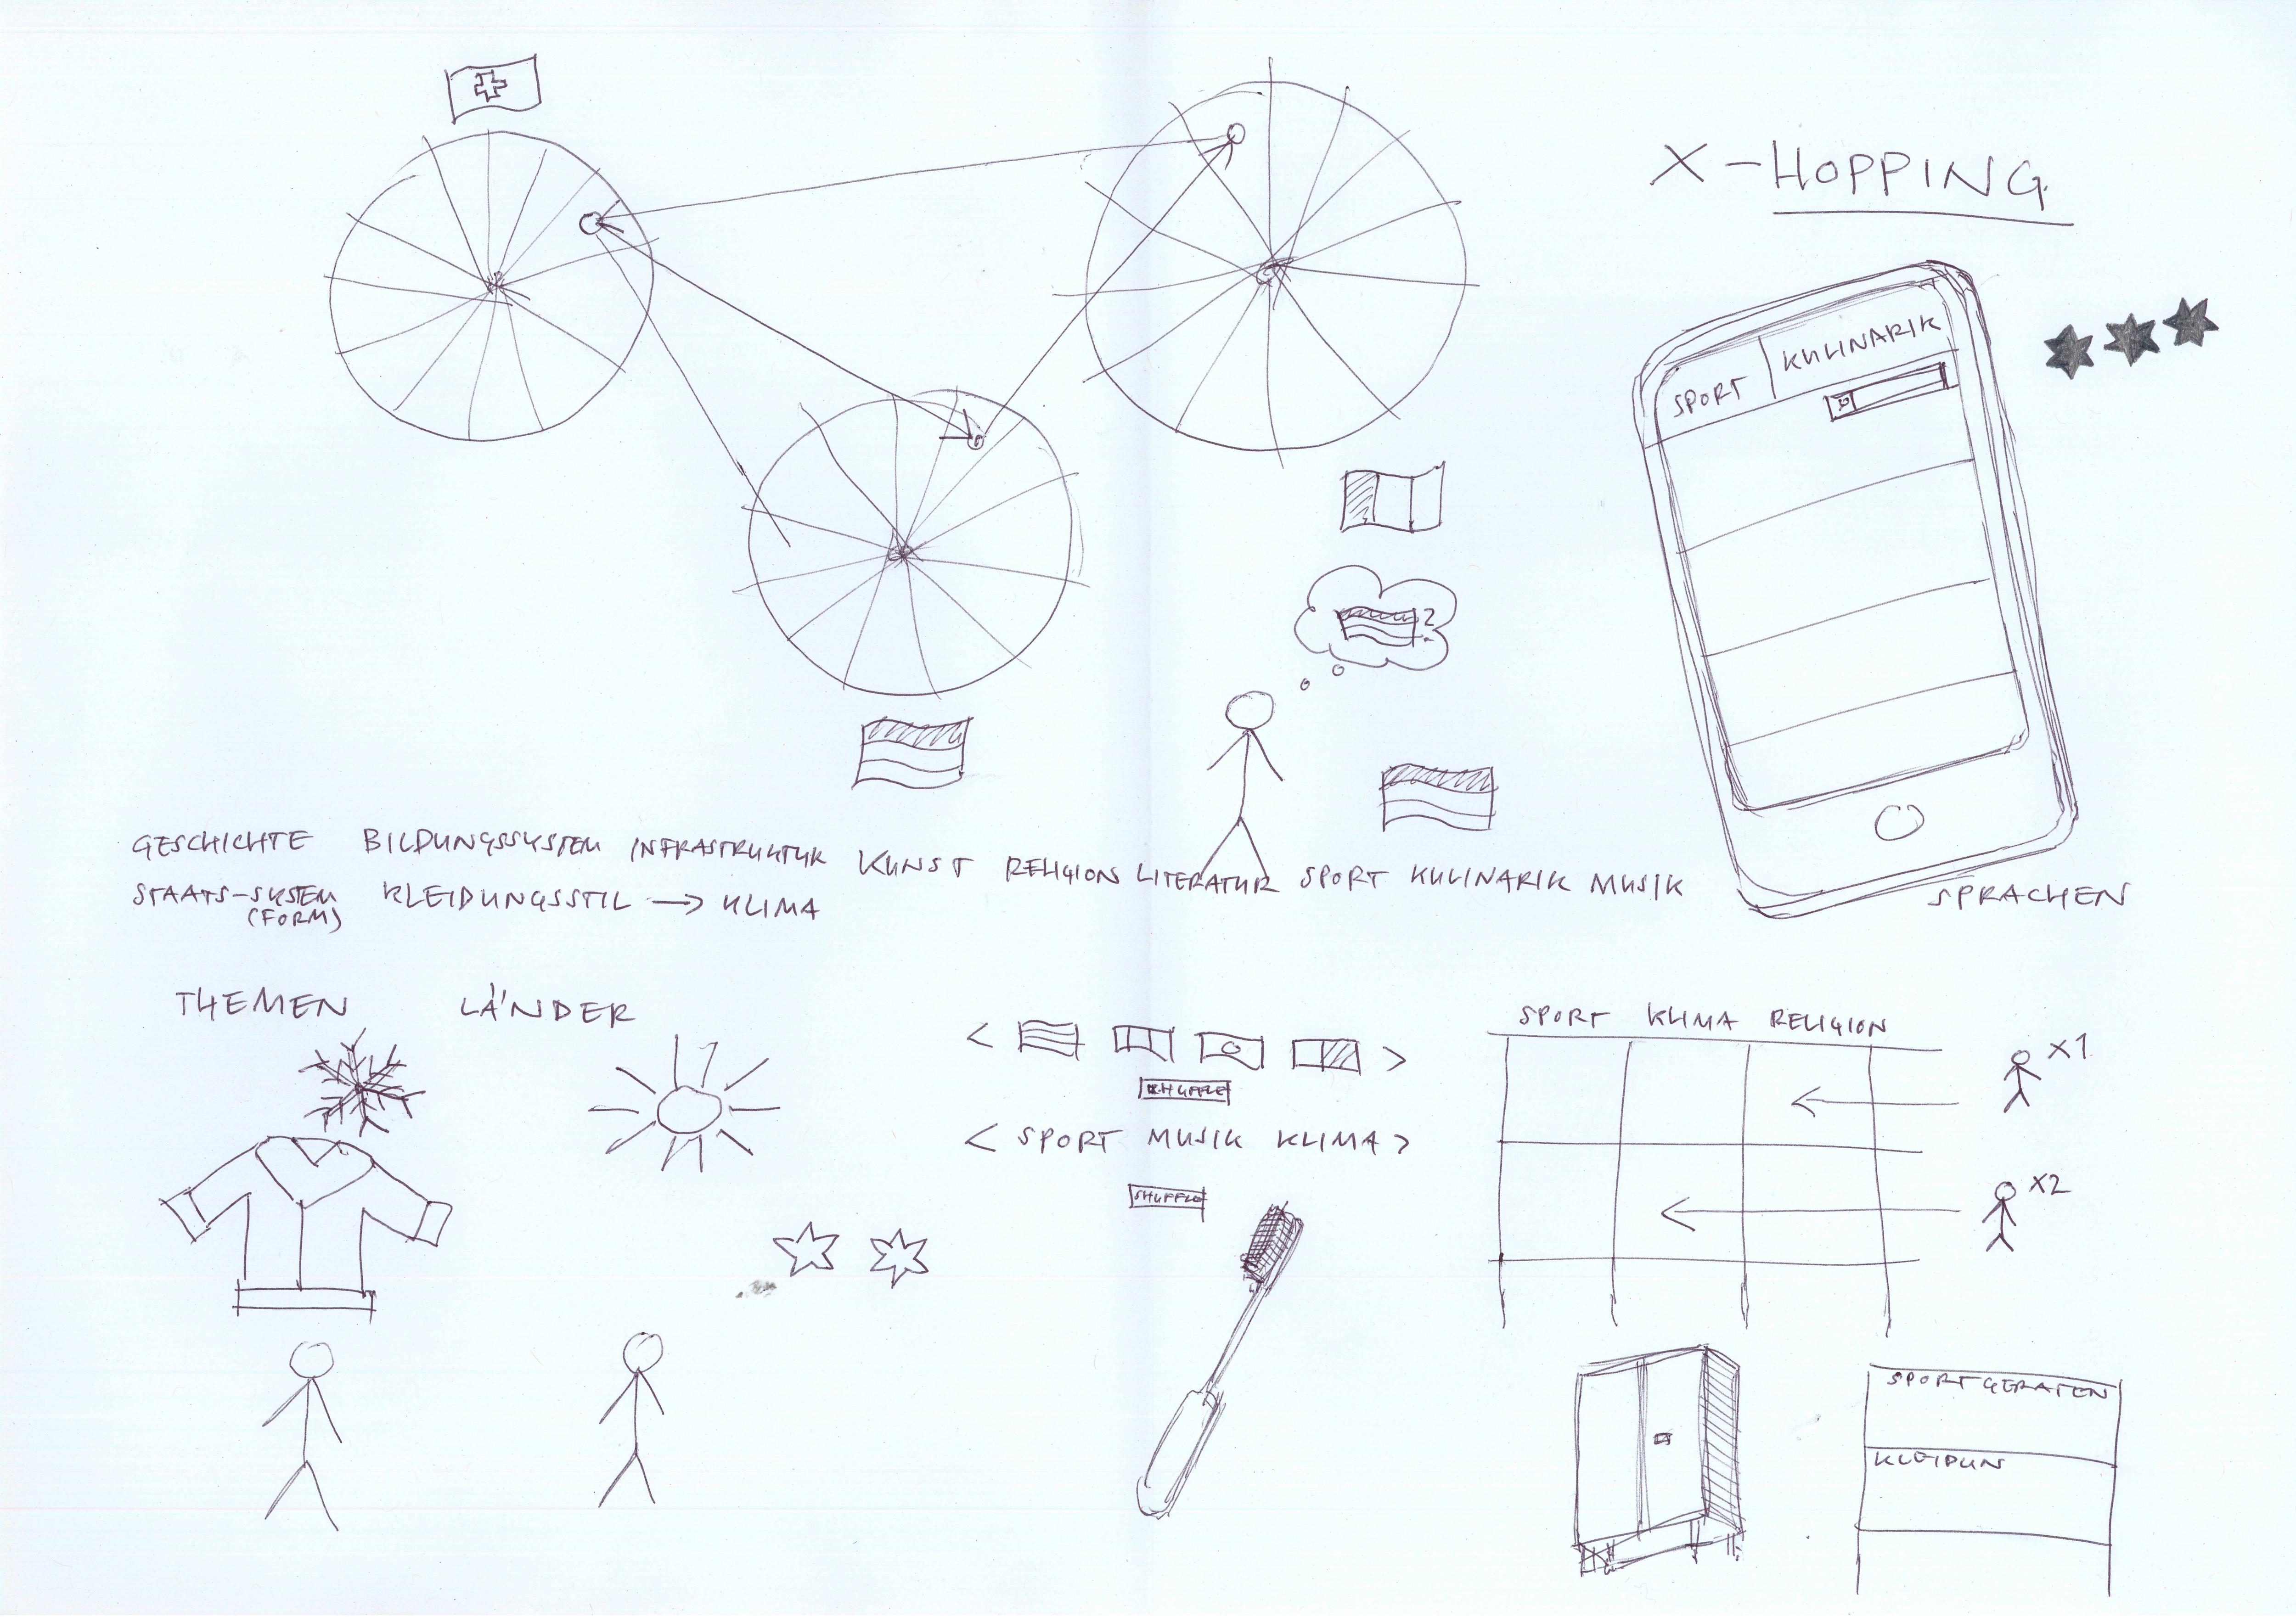 X-HOPPING
SPORT KULINARIK
?
GESCHICHTE BILDUNGSSYSTEM INFRASTRUKTUR KUNST RELIGIONS LITERATUR SPORT KULINARIK MUSIK
STAATS-SYSTEM KLEIDUNGSSTIL → KLIMA SPRACHEN
(FORM)
THEMEN LÄNDER
SHUFFLE
< SPORT MUSIK KLIMA >
SHUFFLE
SPORT KLIMA RELIGION
X1
X2
SPORTGERATEN
KLEIDUN